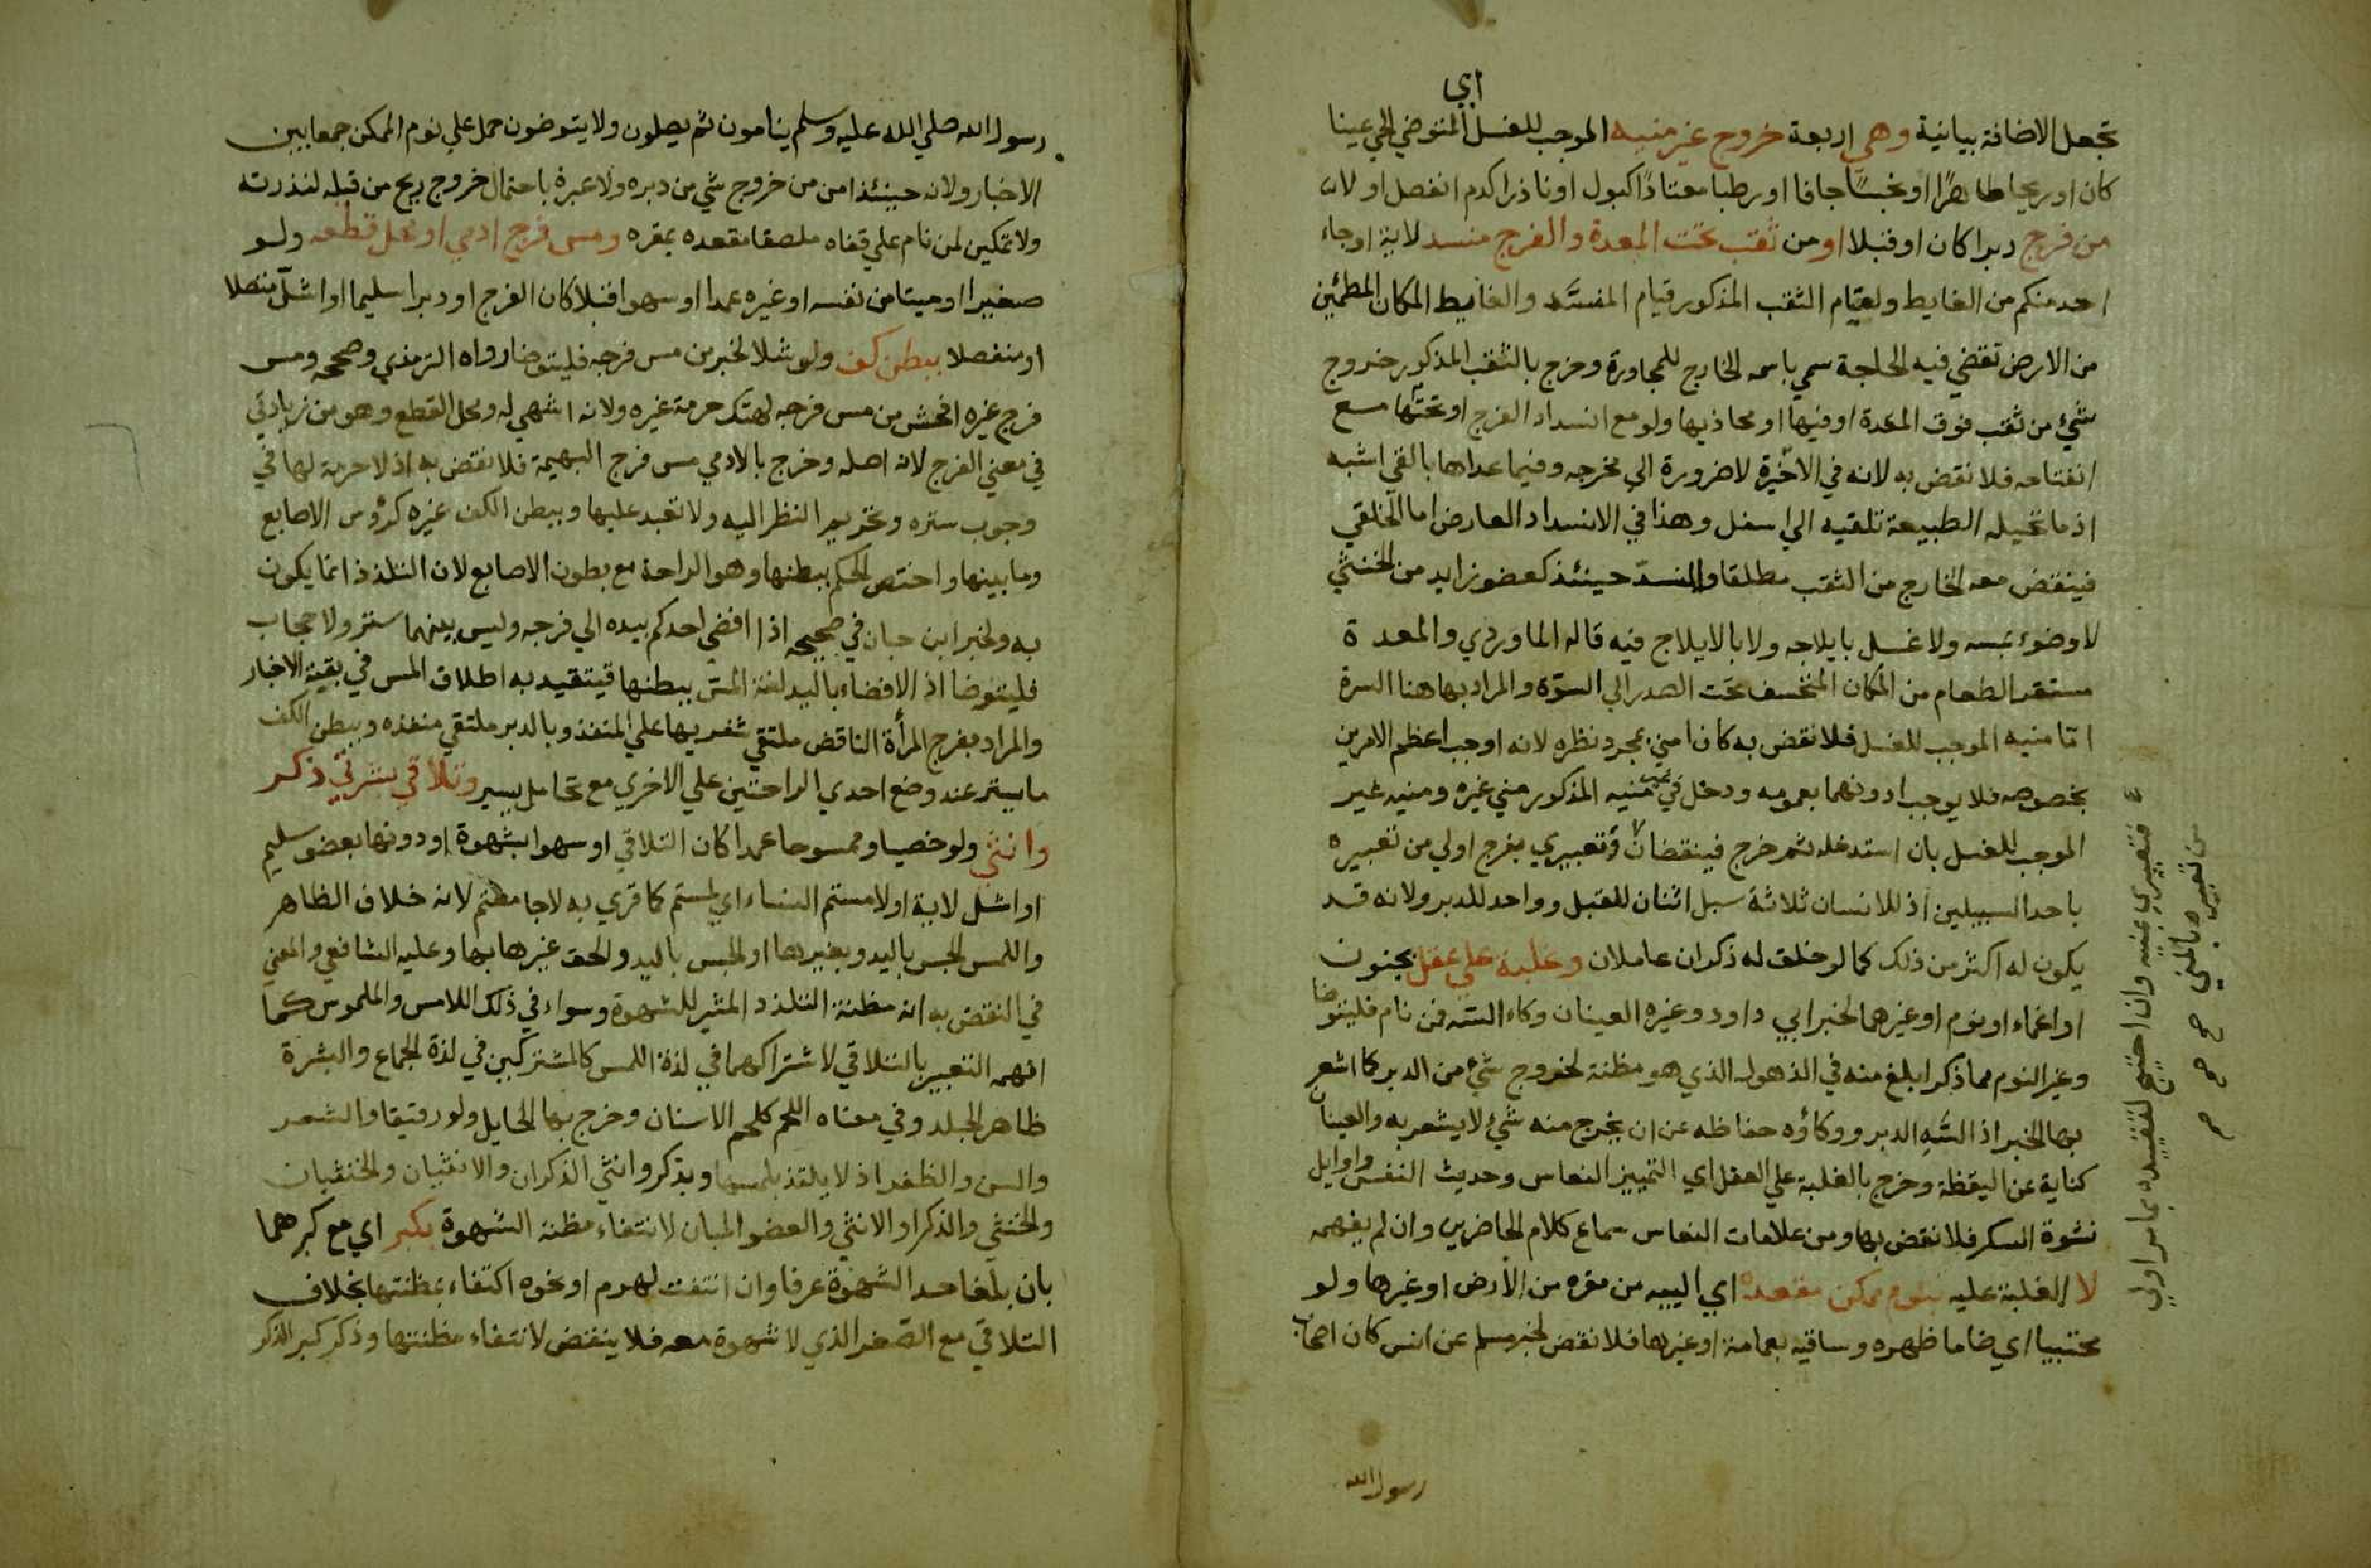 اي
تجعل الاضافة بيانية وهي اربعة خروج غير منيه الموجب للغسل المتوضي الحي عينا
كان او ريحا طاهرًا او نجسًا جافا او رطبا معتادًا كبول او نادرا كدم انفصل او لا
من فرج دبرا كان او قبلا او من ثقب تحت المعدة والفرج منسد لاية او جاء
احد منكم من الغايط ولقيام الثقب المذكور قيام المنسد والغايط المكان المطمئين
من الارض تقضي فيه الحاجة سمي باسمه الخارج للمجاورة وخرج بالثقب المذكور خروج
شيء من ثقب فوق المعدة او فيها او محاذيها ولو مع انسداد الفرج او تحتها مع
انفتاحه فلا نقض به لانه في الاخيرة لا ضرورة الي مخرجه وفيما عداها بالقي اشبه
اذ ما تحيله الطبيعة تلقيه الي اسفل وهذا في الانسداد العارض اما الخلقي
فينقض معه الخارج من الثقب مطلقا والمنسد حينئذ كعضو زايد من الخنثي
لا وضوء بمسه ولا غسل بايلاجه ولا بالايلاج فيه قاله الماوردي والمعدة
مستقر الطعام من المكان المنخسف تحت الصدر الي السرة والمراد بها هنا السرة
امّا منيه الموجب للغسل فلا نقض به كان امني بمجرد نظره لانه اوجب اعظم الامرين
بخصوصه فلا يوجب ادونهما بعمومه ودخل في غير منيه المذكور مني غيره ومنيه غير
الموجب للغسل بان استدخله ثم خرج فينقضان وتعبيري بفرج اولي من تعبيره
باحد السبيلين اذ للانسان ثلاثة سبل اثنان للقبل وواحد للدبر ولانه قد
يكون له اكثر من ذلك كما لو خلق له ذكران عاملان وغلبة علي عقل بجنون
او اغماء او نوم او غيرهما لخبر ابي داود وغيره العينان وكاء السه فمن نام فليتوضا
وغير النوم مما ذكر ابلغ منه في الذهول الذي هو مظنة لخروج شيء من الدبر كما اشعر
بها الخبر اذ السه الدبر ووكاؤه حفاظه عن ان يخرج منه شيء لا يشعر به والعينان
كناية عن اليقظة وخرج بالغلبة علي العقل اي التمييز النعاس وحديث النفس واوايل
نشوة السكر فلا نقض بها ومن علامات النعاس سماع كلام الحاضرين وان لم يفهمه
لا الغلبة عليه بنوم ممكن مقعده اي الييه من مقره من الارض او غيرها ولو
محتبيا اي ضاما ظهره وساقيه بعمامة او غيرها فلا نقض لخبر مسلم عن انس كان اصحاب
رسول الله
فتعبيري بمنيه وان احتيج لتقييده بما مر اولي
من تعبيره بالمني
رسول الله صلي الله عليه وسلم ينامون ثم يصلون ولا يتوضون حمل علي نوم الممكن جمعا بين
الاخبار ولانه حينئذ امن من خروج شي من دبره ولا عبرة باحتمال خروج ريح من قبله لندرته
ولا تمكين لمن نام علي قفاه ملصقا مقعده بمقره ومس فرج ادمي او محل قطعه ولو
صغيرا او ميتا من نفسه او غيره عمدا او سهوا قبلا كان الفرج او دبرا سليما او اشل متصلا
او منفصلا ببطن كف ولو شلا لخبر من مس فرجه فليتوضا رواه الترمذي وصححه ومس
فرج غيره افحش من مس فرجه لهتك حرمة غيره ولانه اشهي له ومحل القطع وهو من زيادتي
في معني الفرج لانه اصله وخرج بالادمي مس فرج البهيمة فلا نقض به اذ لا حرمة لها في
وجوب ستره وتحريم النظر اليه ولا تعبد عليها وببطن الكف غيره كرؤس الاصابع
وما بينها واختص الحكم ببطنها وهو الراحة مع بطون الاصابع لان التلذذ انما يكون
به ولخبر ابن حبان في صحيحه اذا افضي احدكم بيده الي فرجه وليس بينهما ستر ولا حجاب
فليتوضا اذ الافضاء باليد لغة المس ببطنها فيتقيد به اطلاق المس في بقية الاخبار
والمراد بفرج المرأة الناقض ملتقي شفريها علي المنفذ وبالدبر ملتقي منفذه وببطن الكف
ما يستر عند وضع احدي الراحتين علي الاخري مع تحامل يسير وتلاقي بشرتي ذكر
وانثي ولو خصيا وممسوحا عمدا كان التلاقي او سهوا بشهوة او دونها بعضو سليم
او اشل لاية اولامستم النساء اي لمستم كما قري به لا جامعتم لانه خلاف الظاهر
واللمس الجس باليد وبغيرها او الجس باليد والحق غيرها بها وعليه الشافعي والمعني
في النقض به انه مظنة التلذذ المثير للشهوة وسواء في ذلك اللامس والملموس كما
افهمه التعبير بالتلاقي لاشتراكهما في لذة اللمس كالمشتركين في لذة الجماع والبشرة
ظاهر الجلد وفي معناه اللحم كلحم الاسنان وخرج بها الحايل ولو رقيقا والشعر
والسن والظفر اذ لا يلتذ بلمسها وبذكر وانثي الذكران والانثيان والخنثيان
والخنثي والذكر او الانثي والعضو المبان لانتفاء مظنة الشهوة بكبر اي مع كبرهما
بان بلغا حد الشهوة عرفا وان انتفت لهرم او نحوه اكتفاء بمظنتها بخلاف
التلاقي مع الصغر الذي لا شهوة معه فلا ينقض لانتفاء مظنتها وذكر كبر الذكر